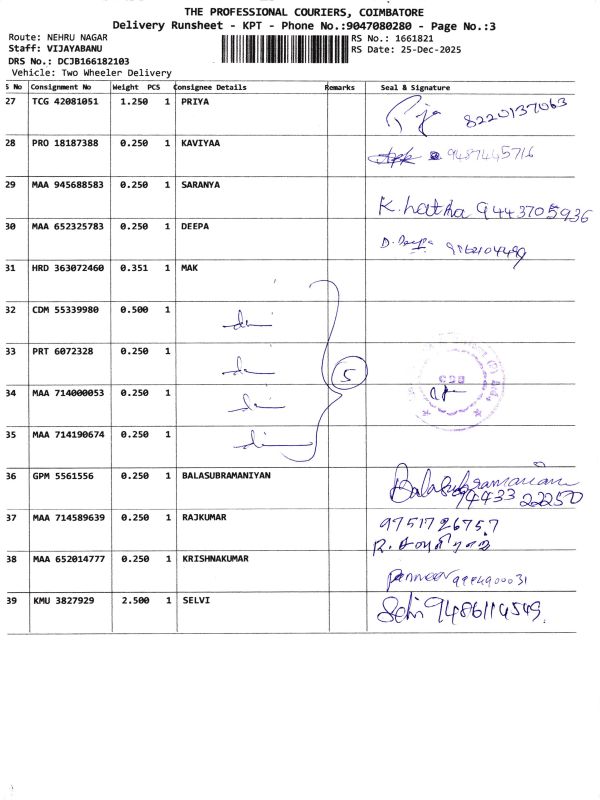 THE PROFESSIONAL COURIERS, COIMBATORE
Delivery Runsheet - KPT - Phone No.:9047080280 - Page No.:3
Route: NEHRU NAGAR
RS No.: 1661821
Staff: VIJAYABANU
RS Date: 25-Dec-2025
DRS No.: DCJB166182103
Vehicle: Two Wheeler Delivery
S No Consignment No Weight PCS Consignee Details Remarks Seal & Signature
27 TCG 42081051 1.250 1 PRIYA 8220137063
28 PRO 18187388 0.250 1 KAVIYAA 9487445716
29 MAA 945688583 0.250 1 SARANYA K. 9443705936
30 MAA 652325783 0.250 1 DEEPA D. Deepa
31 HRD 363072460 0.351 1 MAK
32 CDM 55339980 0.500 1
33 PRT 6072328 0.250 1 5
34 MAA 714000053 0.250 1
35 MAA 714190674 0.250 1
36 GPM 5561556 0.250 1 BALASUBRAMANIYAN Balasubramaniam
94433 22250
37 MAA 714589639 0.250 1 RAJKUMAR 9751726757
R.
38 MAA 652014777 0.250 1 KRISHNAKUMAR
39 KMU 3827929 2.500 1 SELVI Selvi 9486114549